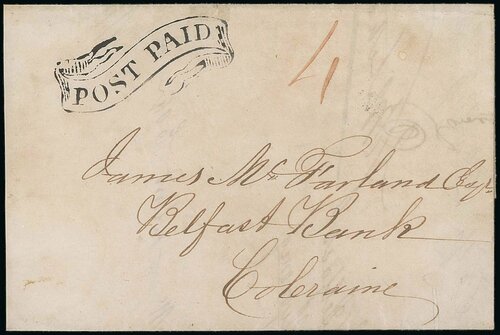 POST PAID
4
James Mc. Farland Esqr.
Belfast Bank
Coleraine